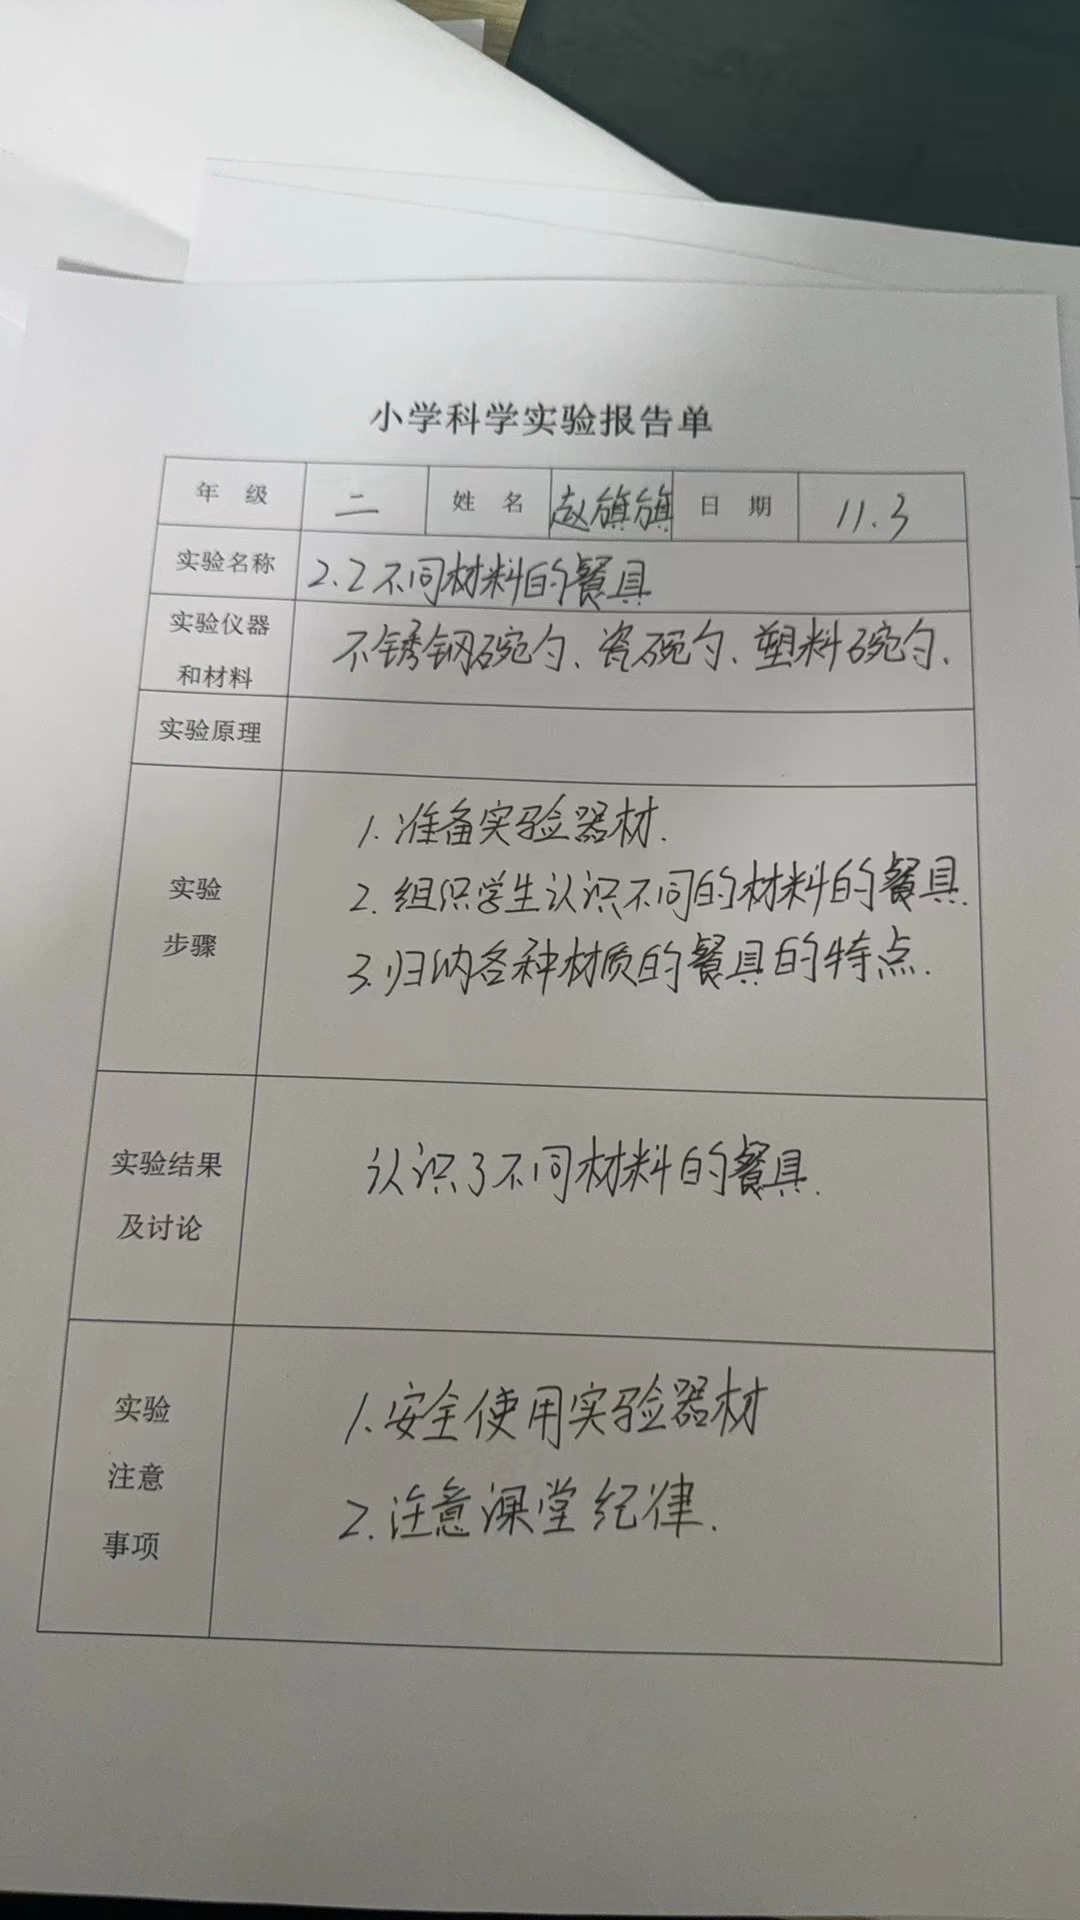 小学科学实验报告单
年 级 二 姓 名 赵旗旗 日 期 11.3
实验名称 2.2不同材料的餐具
实验仪器
和材料
不锈钢碗勺、瓷碗勺、塑料碗勺.
实验原理
实验
步骤
1.准备实验器材.
2.组织学生认识不同的材料的餐具.
3.归纳各种材质的餐具的特点.
实验结果
及讨论
认识了不同材料的餐具.
实验
注意
事项
1.安全使用实验器材
2.注意课堂纪律.